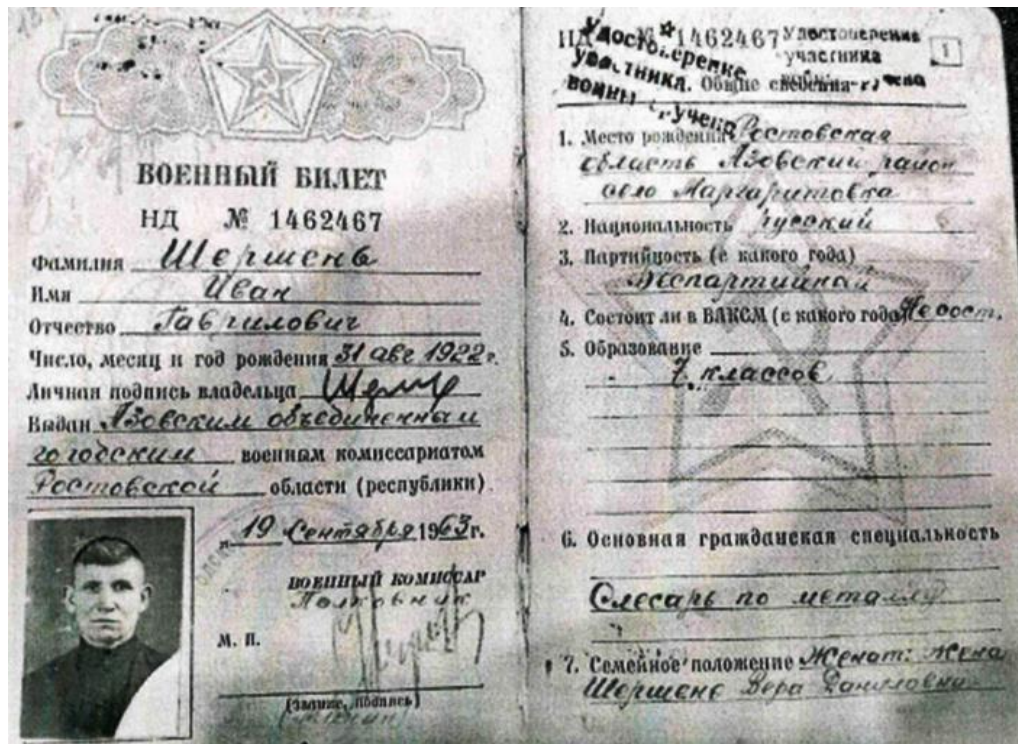 ВОЕННЫЙ БИЛЕТ
НД № 1462467
Фамилия Шершень
Имя Иван
Отчество Гаврилович
Число, месяц и год рождения 31 авг 1922 г.
Личная подпись владельца
Выдан Азовским объединенным
городским военным комиссариатом
Ростовской области (республики)
„19 Сентября 1963 г.
ВОЕННЫЙ КОМИССАР
Полковник
М. П.
(звание, подпись)
НД № 1462467
Удостоверение
участника
войны вручено
Удостоверение
участника
1
Общие сведения
1. Место рождения Ростовская
область Азовский район
село Маргаритовка
2. Национальность русский
3. Партийность (с какого года)
Беспартийный
4. Состоит ли в ВЛКСМ (с какого года) Не сост.
5. Образование
7 классов
6. Основная гражданская специальность
Слесарь по металлу
7. Семейное положение Женат: Жена
Шершень Вера Даниловна